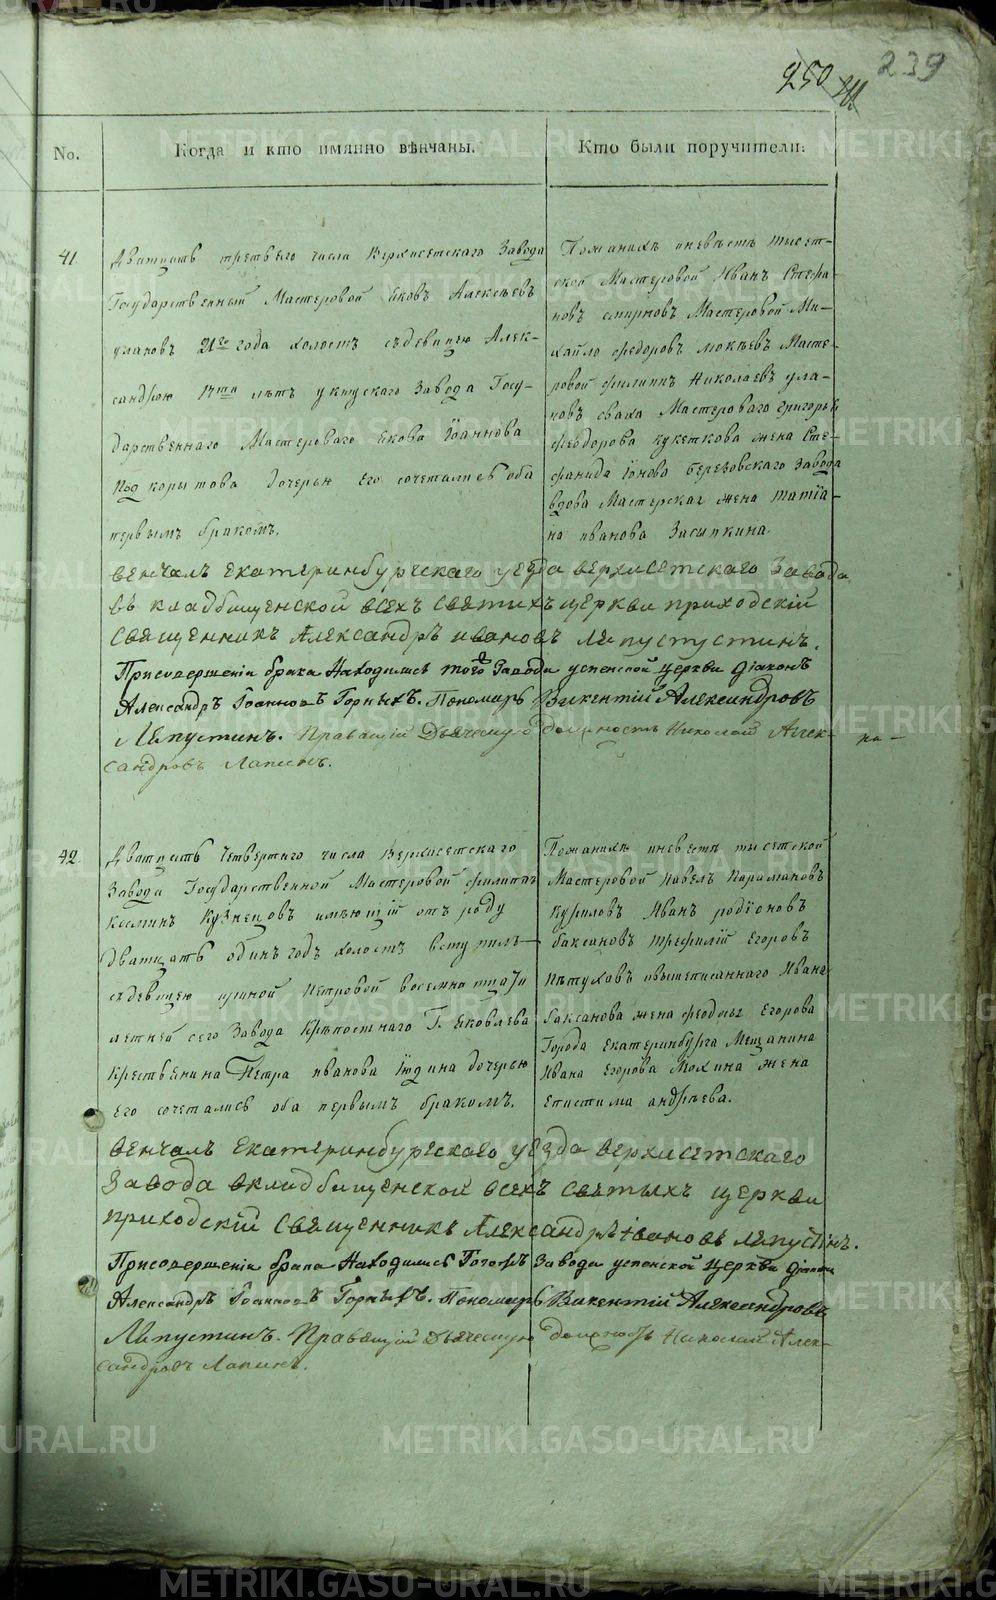 250
239
No.
Когда и кто имянно вѣнчаны.
Кто были поручители:
41
Дватцать третьего числа Верхисетского Завода
Государственный Мастеровой Яковъ Алексѣевъ
улановъ 21го года холостъ съдевицею Алек-
сандрою 17ти лѣтъ уктуского Завода Госу-
дарственнаго Мастероваго Якова Іоаннова
Под корытова дочерью его сочетались оба
первымъ бракомъ.
Пожанихѣ иневѣстѣ тысет-
ской Мастеровой Иванъ Стефа-
новъ смирновъ Мастеровой Ми-
хайло федоровъ мокѣевъ Масте-
ровой филиппъ Николаевъ ула-
новъ сваха Мастероваго григорья
феодорова кукеткова жена Сте-
фанида іонова березовскаго завода
вдова Мастерская жена татіа-
на иванова Засыпкина.
венчалъ екатеринбургскаго уезда верхисетскаго Завода
въ кладбищенской всехъ святыхъ церкви приходскій
священникъ Александръ ивановъ Ляпустинъ.
Присовершеніи брака Находились того Завода успенской церкви діаконъ
Александръ Іоанновъ Горныхъ. Пономарь Викентій Александровъ
Ляпустинъ. Правящій Дьяческую должность Николай Алек-
сандровъ Лапинъ.
42
Дватцать Четвертаго числа Верхисетскаго
Завода Государственной Мастеровой филиппъ
Козминъ Кузнецовъ имѣющій отъ роду
дватцать одинъ годъ холостъ вступилъ
съдевицею ириной Петровой восемнатцати
летней сего Завода Крѣпостнаго Г. Яковлева
Крестьянина Петра иванова Юдина дочерью
его сочетались оба первымъ бракомъ.
Пожанихѣ иневестѣ тысетской
Мастеровой Павелъ Парамановъ
Куриловъ Иванъ родіоновъ
баксановъ трефилій Егоровъ
Пѣтуховъ ивышеписаннаго Ивана
баксанова жена феодосья Егорова
Города екатеринбурга Мещанина
Ивана Егорова Мохина жена
епистима андрѣева.
венчалъ екатеринбургскаго уезда верхисетскаго
Завода вкладбищенской всехъ святыхъ церкви
приходскій священникъ Александръ ивановъ Ляпустинъ.
Присовершеніи брака Находились Тогожъ Завода успенской церкви діаконъ
Александръ Іоанновъ Горныхъ. Пономарь Викентій Александровъ
Ляпустинъ. Правящій дьяческую должность Николай Алек-
сандровъ Лапинъ.
METRIKI.GASO-URAL.RU